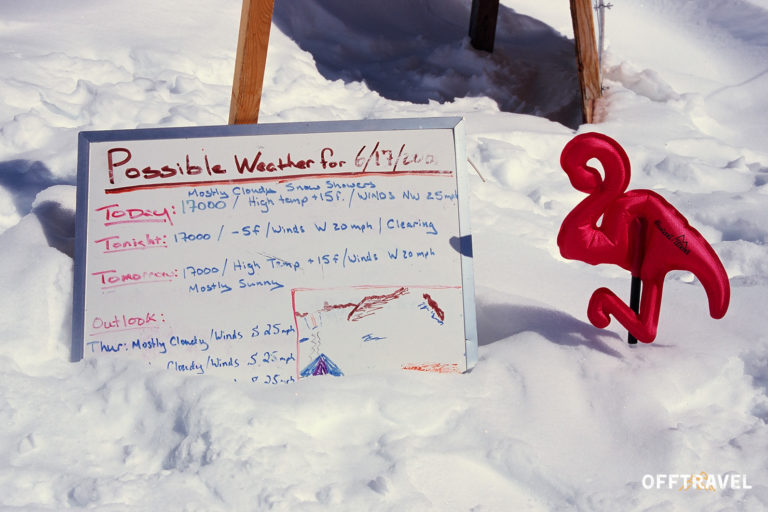 Possible Weather for 6/17/200
Mostly Cloudy Snow Showers
Today: 17000 / High temp +15f. / Winds NW 25mph
Tonight: 17000 / -5f / Winds W 20mph / Clearing
Tomorrow: 17000 / High Temp +15f / Winds W 20mph
Mostly Sunny
Outlook:
Thur: Mostly Cloudy / Winds S 25mph
Cloudy / Winds S 25mph
S 25mph
OFFTRAVEL